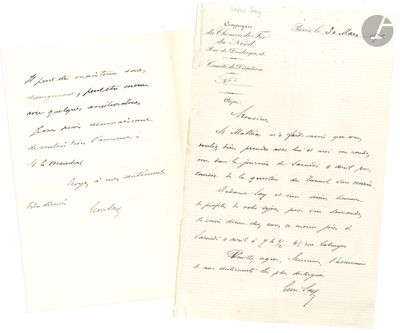 Il peut être maintenu sans
changement, peut être même
avec quelques améliorations.
serais reconnaissant
de vouloir bien l'annoncer à
M. le Maréchal
Croyez à mes sentiments
bien dévoués
Léon Say
Compagnie
du Chemin de Fer
du Nord
Rue de Dunkerque, 18
Comité de Direction
Paris, le 30 Mars
Monsieur,
M. Mathias m'a fait savoir que vous
voulez bien prendre avec lui et moi un rendez
vous dans la journée de Samedi 4 avril pour
causer de la question du tunnel sous marin
Madame Say et moi serions heureux
de profiter de votre séjour pour vous demander
de venir dîner chez nous ce même jour là
Samedi 4 avril à 7 h ½ rue
Veuillez agréer, Monsieur, l'assurance
de mes sentiments les plus distingués
Léon Say